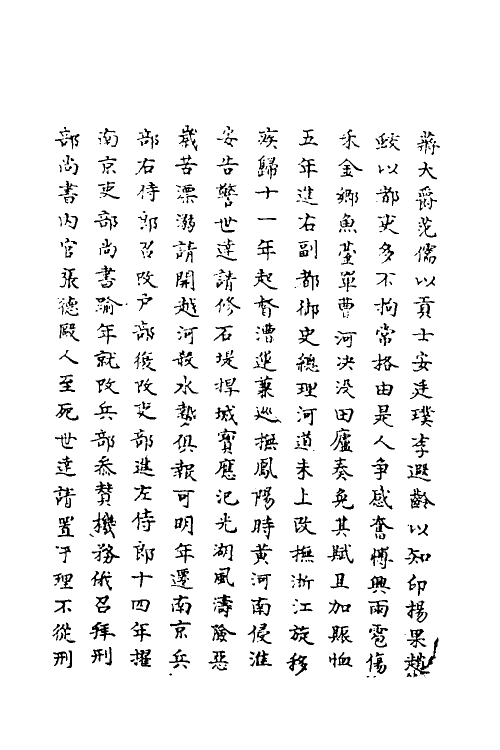 蔣大爵范儒以貢士安廷璞李遐齡以知印楊果趙
鮫以都吏多不拘常格由是人爭感奮博興雨雹傷
禾金鄉魚臺單曹河決没田廬奏免其賦且加賑恤
五年進右副都御史總理河道未上改撫浙江旋移
疾歸十一年起督漕運兼巡撫鳳陽時黄河南侵淮
安告警世達請修石堤捍城寶應氾光湖風濤險惡
歲苦漂溺請開越河殺水勢俱報可明年遷南京兵
部右侍郎召改户部後改吏部進左侍郎十四年擢
南京吏部尚書踰年就改兵部叅贊機務俄召拜刑
部尚書内官張德毆人至死世達請置于理不從刑